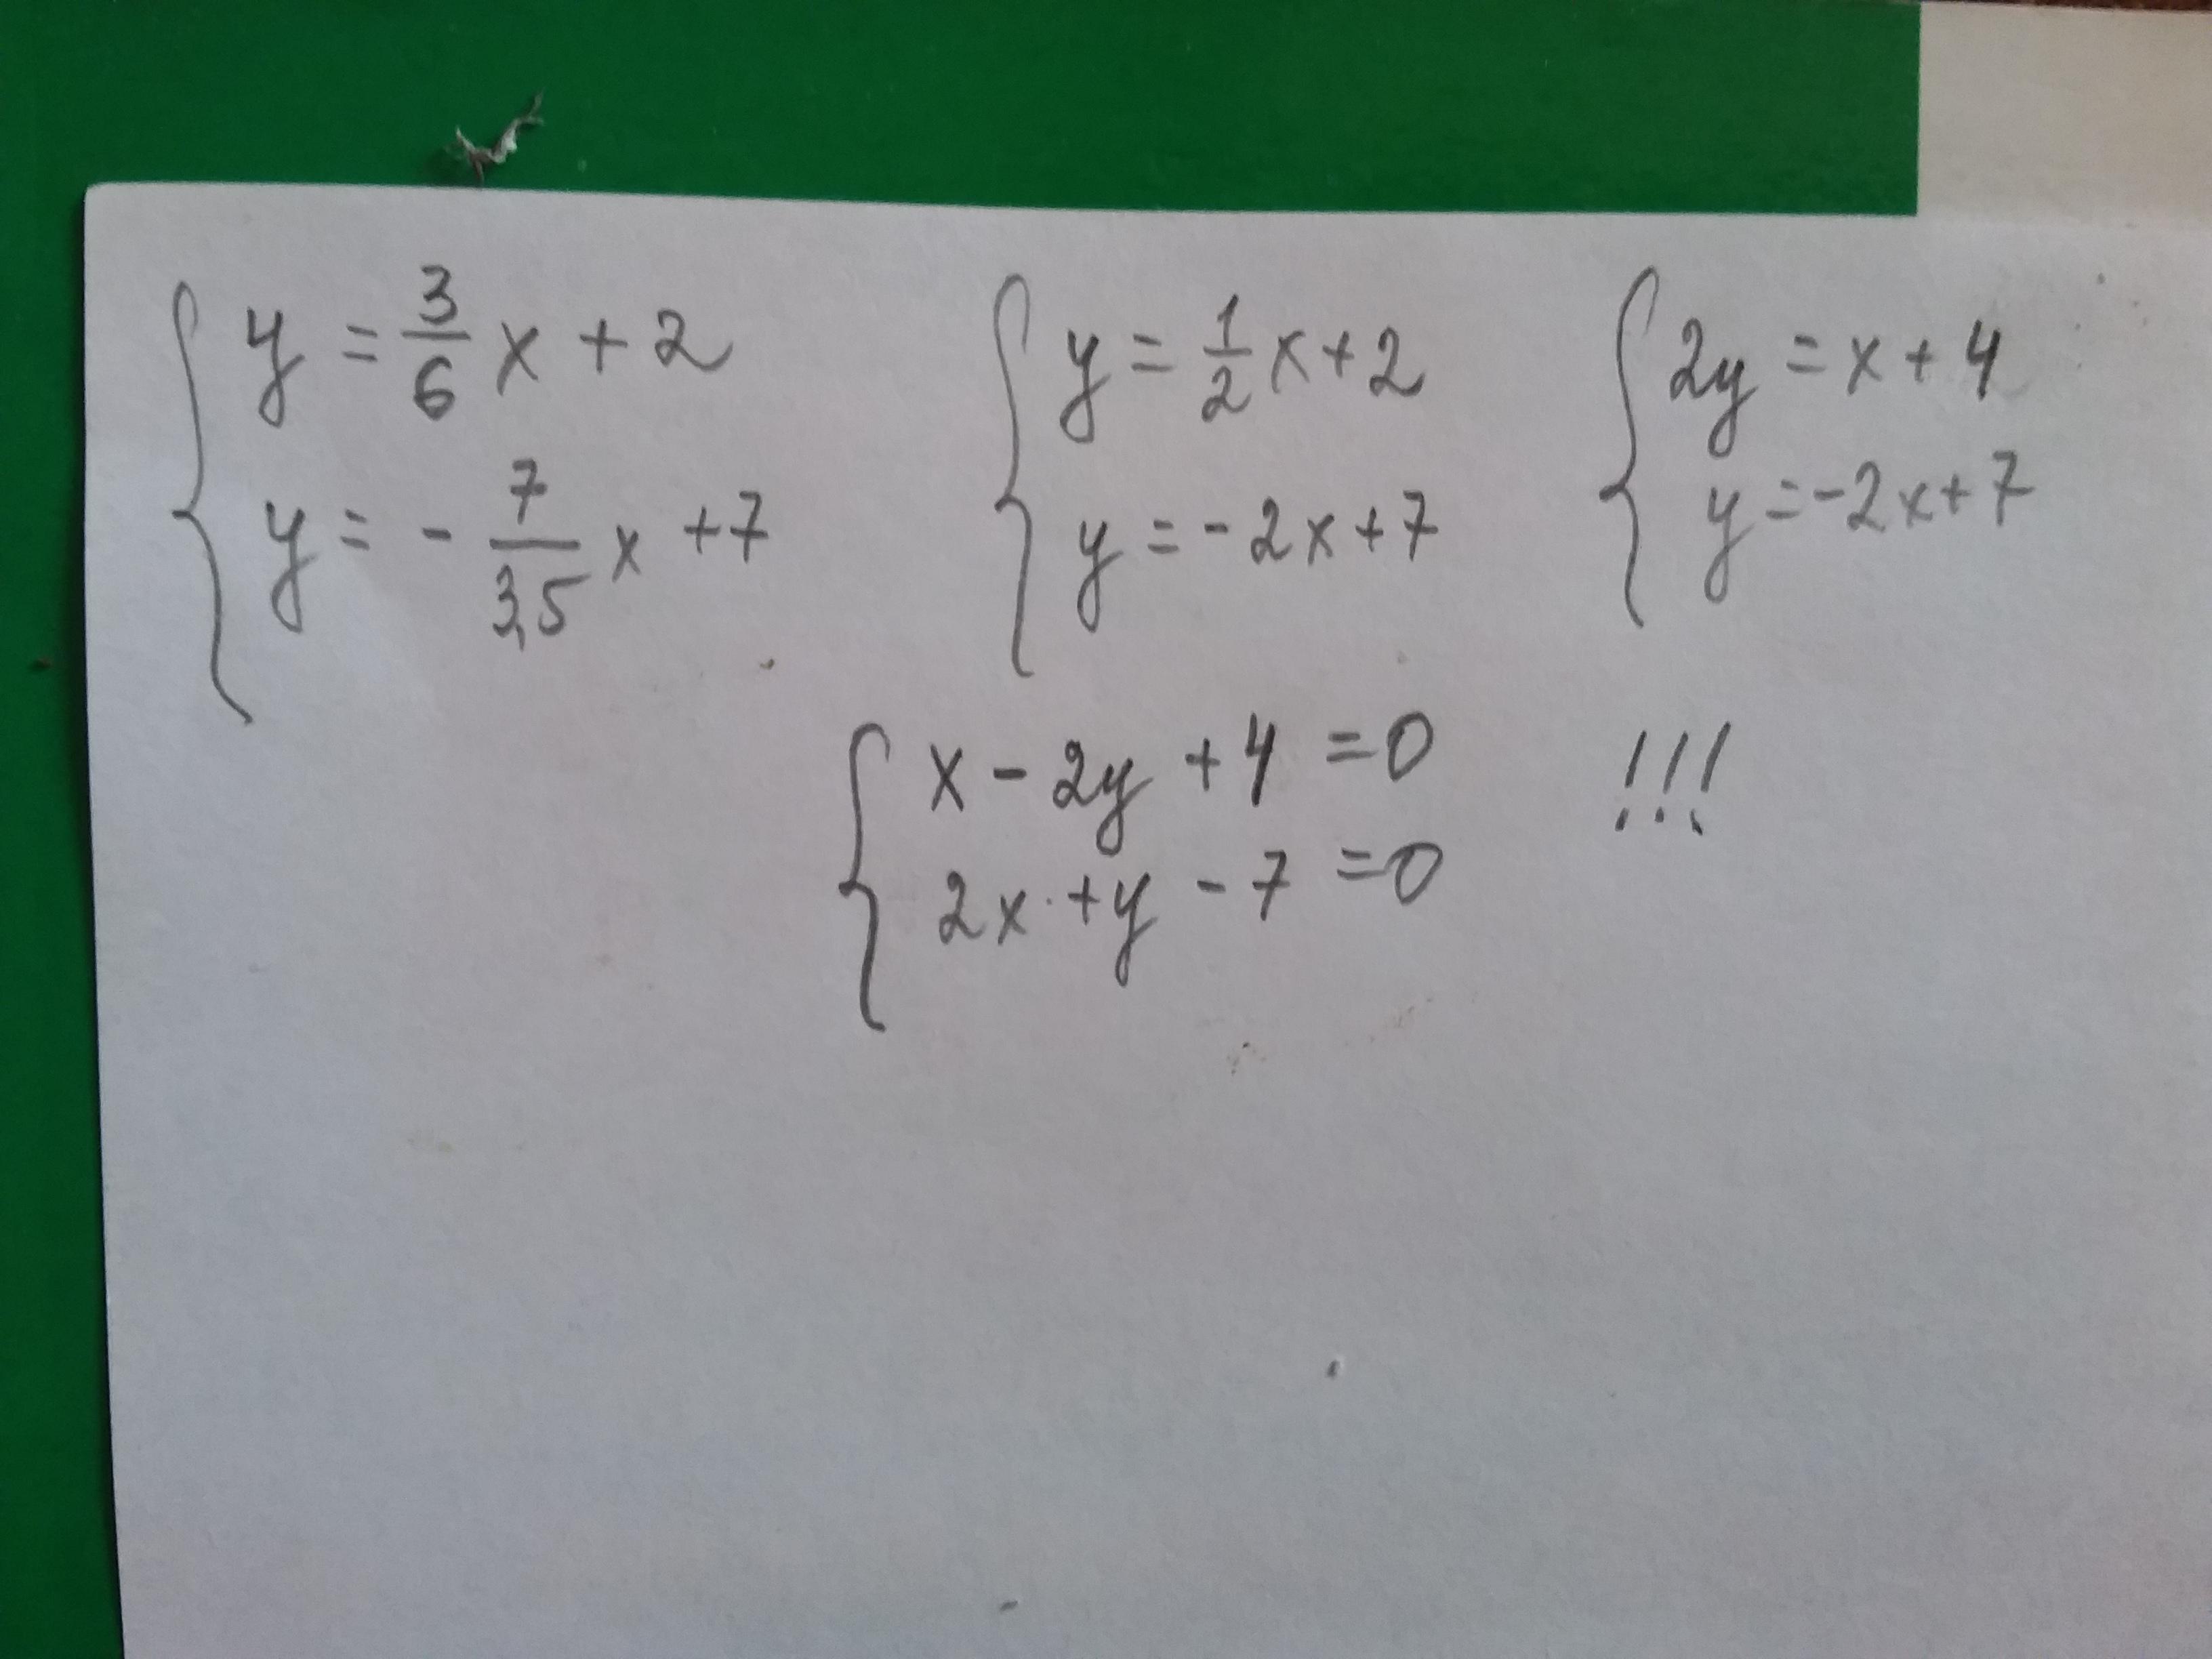 { y = 3/6 x + 2
y = - 7/3,5 x + 7
{ y = 1/2 x + 2
y = - 2x + 7
{ 2y = x + 4
y = -2x + 7
{ x - 2y + 4 = 0 !!!
2x + y - 7 = 0